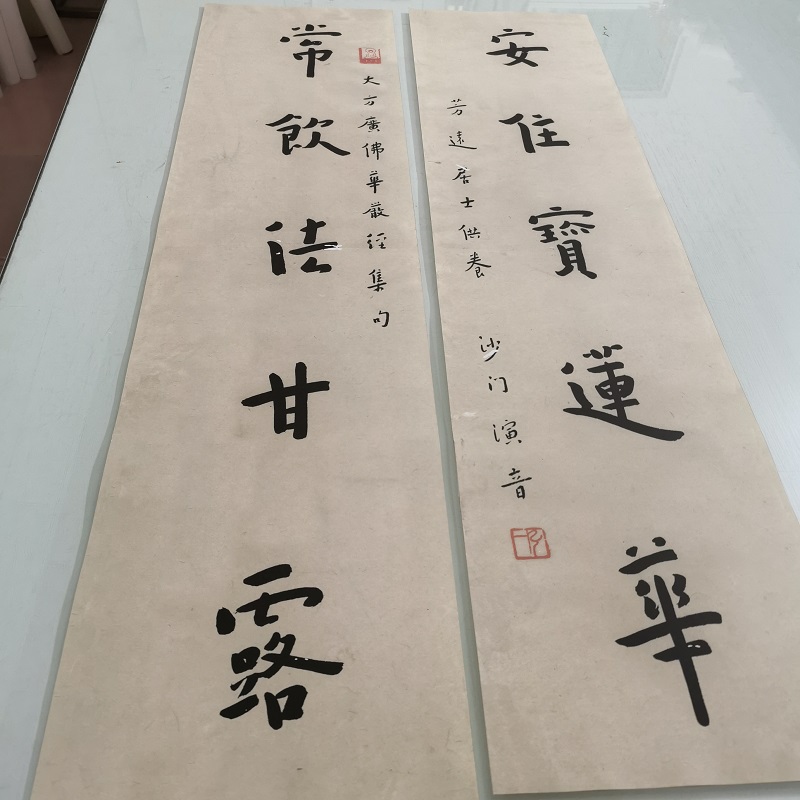 常飲法甘露
大方廣佛華嚴經集句
安住寶蓮華
芳遠居士供養 沙门演音